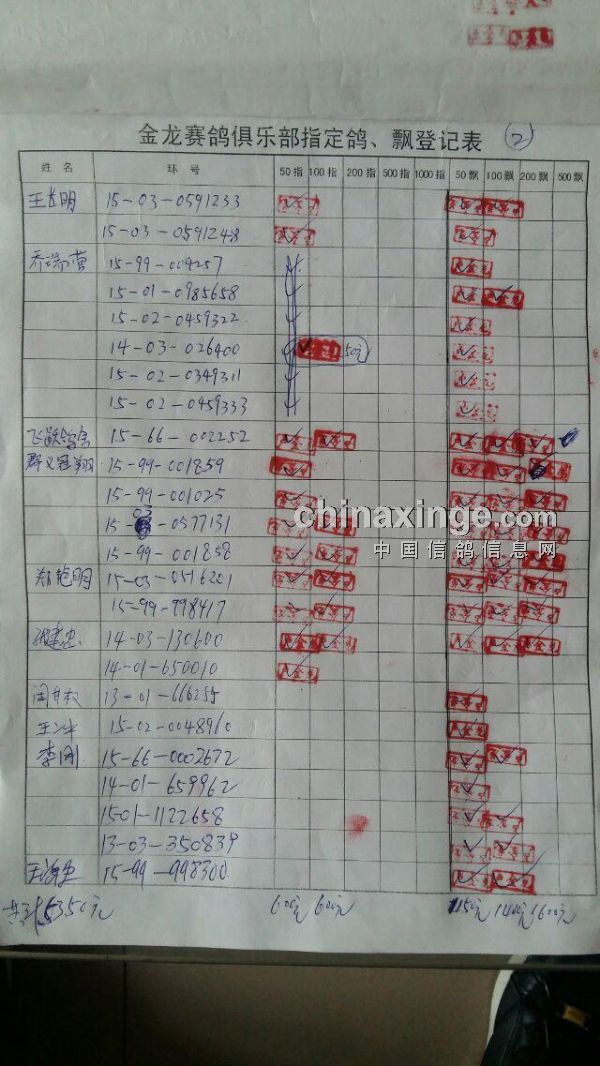 金龙赛鸽俱乐部指定鸽、飘登记表 2
姓名 环号 50指 100指 200指 500指 1000指 50飘 100飘 200飘 500飘
15-03-0591233
15-03-0591248
15-99-009257
15-01-0985658
15-02-0459322
14-03-026400 50元
15-02-0349311
15-02-0459333
15-66-002252
15-99-001859
15-99-001025
15-03-0577131
15-99-001858
郑艳明 15-03-0516201
15-99-998417
14-03-130600
14-01-650010
13-01-666255
15-02-0048960
李刚 15-66-0002672
14-01-659962
1501-1122658
13-03-350839
15-99-998300
共计5350元 600元 600元 1150元 1400元 1600元
chinaxinge.com
中国信鸽信息网